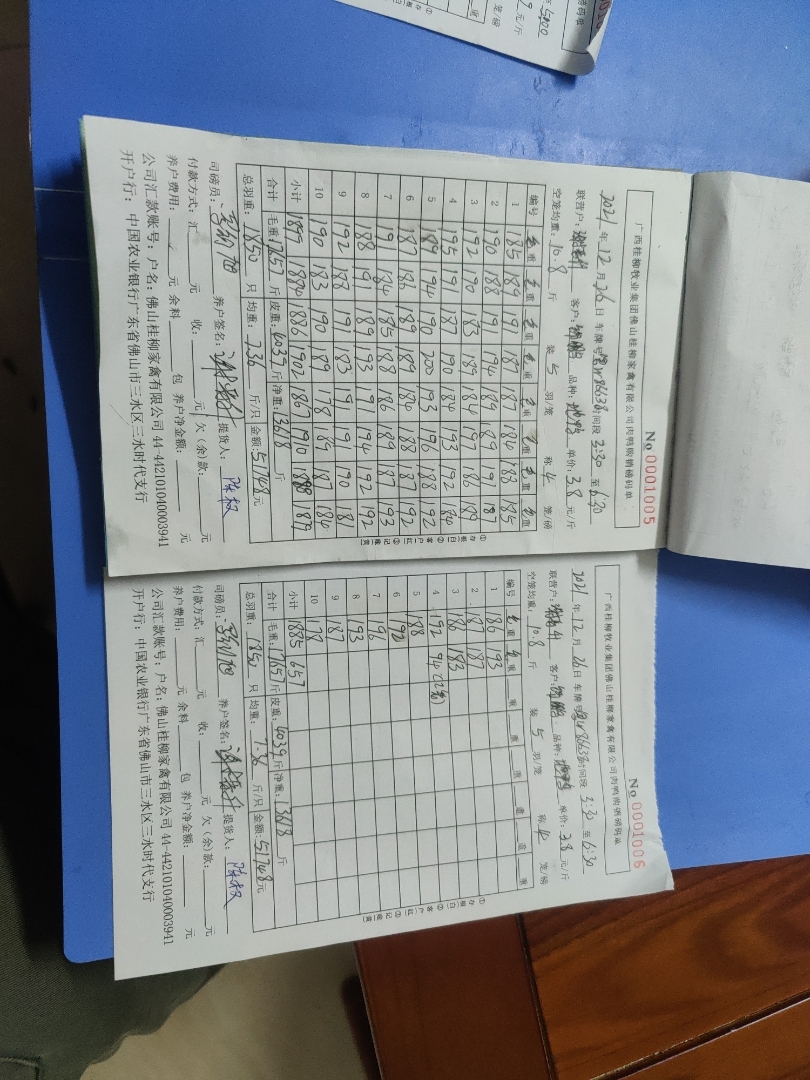 广西桂柳牧业集团佛山桂柳家禽有限公司肉鸭购销磅码单
No 0001005
2021年12月26日 车牌号 时间段 3:30 至 6:30
联营户: 客户: 品种: 单价: 3.8 元/斤
空笼均重: 10.8 斤 装 5 羽/笼 称 4 笼/磅
编号 毛重 毛重 毛重 毛重 毛重 毛重 毛重 毛重
1 185 189 191 187 187 184 188 185
2 190 188 191 194 189 189 191 187
3 192 190 183 189 184 197 186 189
4 195 191 187 190 184 193 192 184
5 189 194 190 200 193 196 188 192
6 187 186 189 189 184 188 187 192
7 191 184 185 188 186 189 187 193
8 188 191 189 193 191 194 192 192
9 192 188 191 183 191 191 190 181
10 190 183 190 189 178 189 187 184
小计 1899 1884 1886 1902 1867 1910 1888 1879
合计 毛重: 17657 斤 皮重: 4039 斤 净重: 13618 斤
总羽重: 1850 只 均重: 7.36 斤/只 金额: 51748 元
司磅员: 养户签名: 提货人: 陈权
付款方式: 汇 元 收: 元 欠(余)款: 元
养户费用: 元 余料 包 养户净金额: 元
公司汇款账号: 户名: 佛山桂柳家禽有限公司 44-442101040003941
开户行: 中国农业银行广东省佛山市三水区三水时代支行
①存根(白) ②客户(红) ③记账(黄)
广西桂柳牧业集团佛山桂柳家禽有限公司肉鸭购销磅码单
No 0001006
2021年12月26日 车牌号 时间段 3:30 至 6:30
联营户: 客户: 品种: 单价: 3.8 元/斤
空笼均重: 10.8 斤 装 5 羽/笼 称 4 笼/磅
编号 毛重 毛重 重 重 重 重 重 重
1 186 193
2 187 187
3 186 183
4 192 94(2笼)
5 188
6 192
7 196
8 193
9 187
10 178
小计 1885 657
合计 毛重: 17657 斤 皮重: 4039 斤 净重: 13618 斤
总羽重: 1850 只 均重: 7.36 斤/只 金额: 51748 元
司磅员: 养户签名: 提货人: 陈权
付款方式: 汇 元 收: 元 欠(余)款: 元
养户费用: 元 余料 包 养户净金额: 元
公司汇款账号: 户名: 佛山桂柳家禽有限公司 44-442101040003941
开户行: 中国农业银行广东省佛山市三水区三水时代支行
①存根(白) ②客户(红) ③记账(黄)